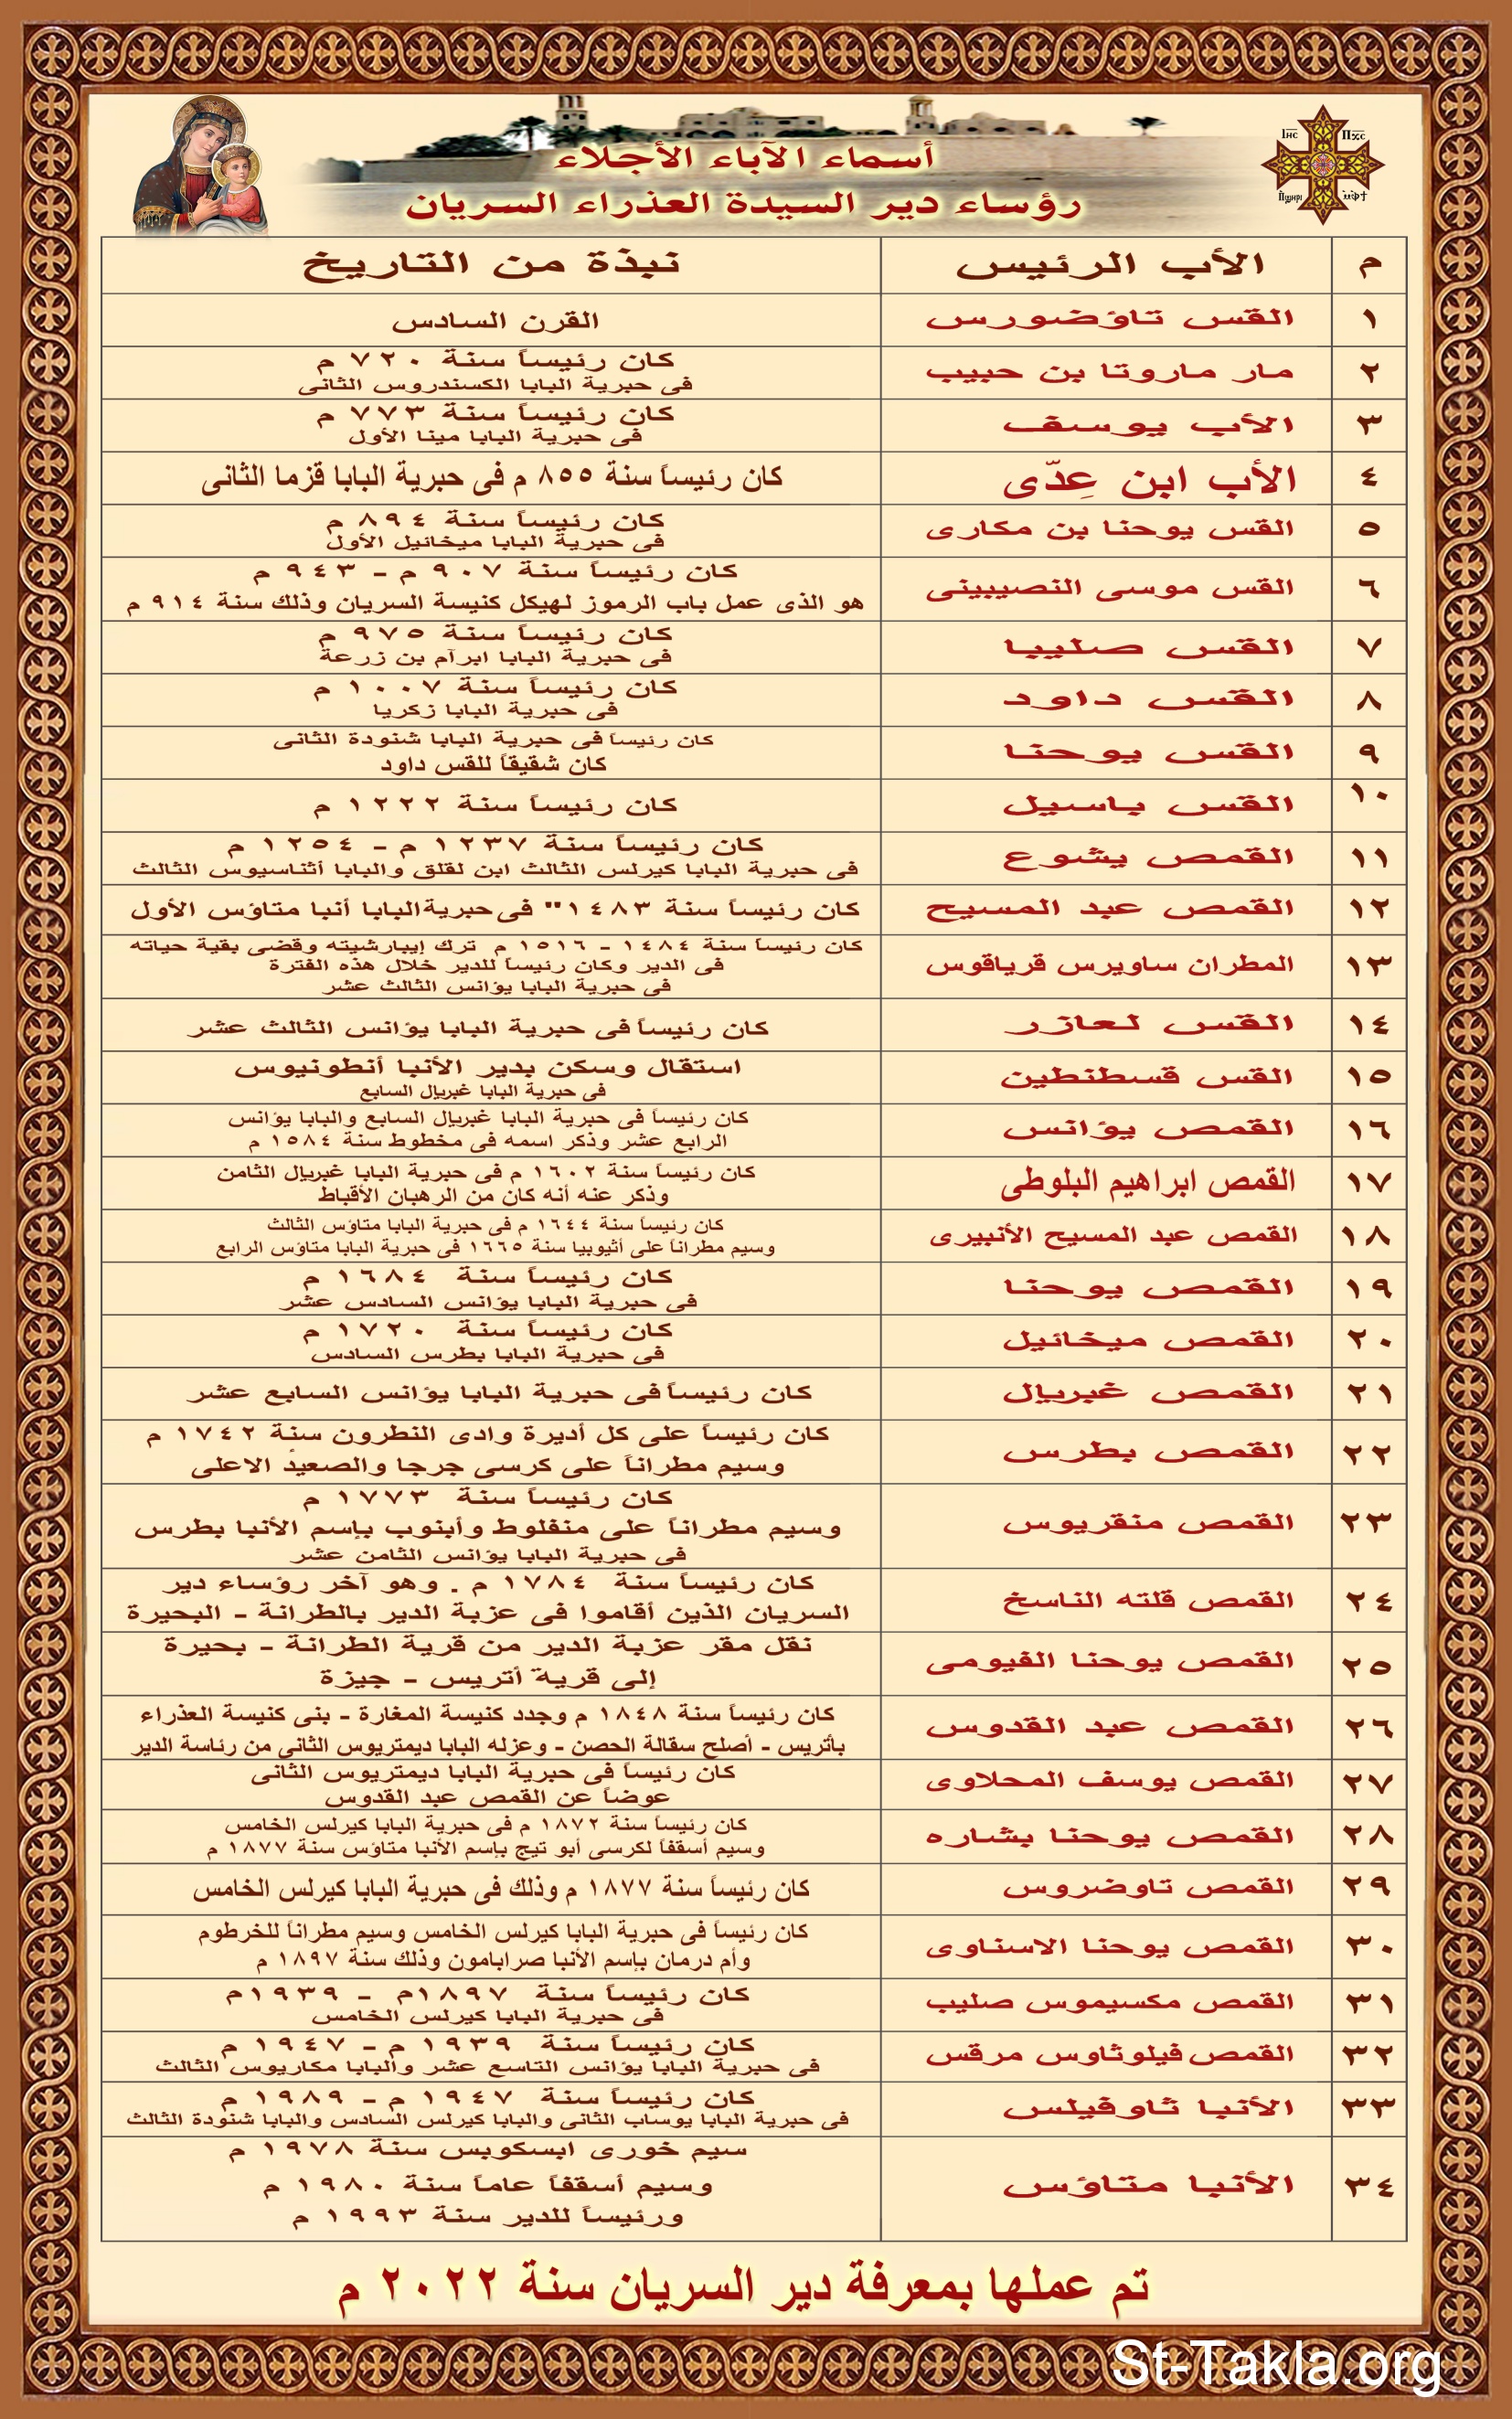 أسماء الآباء الأجلاء
رؤساء دير السيدة العذراء السريان
م الأب الرئيس نبذة من التاريخ
١ القس تاؤضورس القرن السادس
٢ مار ماروتا بن حبيب كان رئيساً سنة ٧٢٠ م
فى حبرية البابا الكسندروس الثانى
٣ الأب يوسف كان رئيساً سنة ٧٧٣ م
فى حبرية البابا مينا الأول
٤ الأب ابن عِدّى كان رئيساً سنة ٨٥٥ م فى حبرية البابا قزما الثانى
٥ القس يوحنا بن مكارى كان رئيساً سنة ٨٩٤ م
فى حبرية البابا ميخائيل الأول
٦ القس موسى النصيبينى كان رئيساً سنة ٩٠٧ م - ٩٤٣ م
هو الذى عمل باب الرموز لهيكل كنيسة السريان وذلك سنة ٩١٤ م
٧ القس صليبا كان رئيساً سنة ٩٧٥ م
فى حبرية البابا ابرآم بن زرعة
٨ القس داود كان رئيساً سنة ١٠٠٧ م
فى حبرية البابا زكريا
٩ القس يوحنا كان رئيساً فى حبرية البابا شنودة الثانى
كان شقيقاً للقس داود
١٠ القس باسيل كان رئيساً سنة ١٢٢٢ م
١١ القمص يشوع كان رئيساً سنة ١٢٣٧ م - ١٢٥٤ م
فى حبرية البابا كيرلس الثالث ابن لقلق والبابا أثناسيوس الثالث
١٢ القمص عبد المسيح كان رئيساً سنة ١٤٨٣" فى حبرية البابا أنبا متاؤس الأول
١٣ المطران ساويرس قرياقوس كان رئيساً سنة ١٤٨٤ - ١٥١٦ م ترك إيبارشيته وقضى بقية حياته
فى الدير وكان رئيساً للدير خلال هذه الفترة
فى حبرية البابا يؤانس الثالث عشر
١٤ القس لعازر كان رئيساً فى حبرية البابا يؤانس الثالث عشر
١٥ القس قسطنطين استقال وسكن بدير الأنبا أنطونيوس
فى حبرية البابا غبريال السابع
١٦ القمص يؤانس كان رئيساً فى حبرية البابا غبريال السابع والبابا يؤانس
الرابع عشر وذكر اسمه فى مخطوط سنة ١٥٨٤ م
١٧ القمص ابراهيم البلوطى كان رئيساً سنة ١٦٠٢ م فى حبرية البابا غبريال الثامن
وذكر عنه أنه كان من الرهبان الأقباط
١٨ القمص عبد المسيح الأنبيرى كان رئيساً سنة ١٦٤٤ م فى حبرية البابا متاؤس الثالث
وسيم مطراناً على أثيوبيا سنة ١٦٦٥ فى حبرية البابا متاؤس الرابع
١٩ القمص يوحنا كان رئيساً سنة ١٦٨٤ م
فى حبرية البابا يؤانس السادس عشر
٢٠ القمص ميخائيل كان رئيساً سنة ١٧٢٠ م
فى حبرية البابا بطرس السادس
٢١ القمص غبريال كان رئيساً فى حبرية البابا يؤانس السابع عشر
٢٢ القمص بطرس كان رئيساً على كل أديرة وادى النطرون سنة ١٧٤٢ م
وسيم مطراناً على كرسى جرجا والصعيد الاعلى
٢٣ القمص منقريوس كان رئيساً سنة ١٧٧٣ م
وسيم مطراناً على منفلوط وأبنوب بإسم الأنبا بطرس
فى حبرية البابا يؤانس الثامن عشر
٢٤ القمص قلته الناسخ كان رئيساً سنة ١٧٨٤ م . وهو آخر رؤساء دير
السريان الذين أقاموا فى عزبة الدير بالطرانة - البحيرة
٢٥ القمص يوحنا الفيومى نقل مقر عزبة الدير من قرية الطرانة - بحيرة
إلى قرية أتريس - جيزة
٢٦ القمص عبد القدوس كان رئيساً سنة ١٨٤٨ م وجدد كنيسة المغارة - بنى كنيسة العذراء
بأتريس - أصلح سقالة الحصن - وعزله البابا ديمتريوس الثانى من رئاسة الدير
٢٧ القمص يوسف المحلاوى كان رئيساً فى حبرية البابا ديمتريوس الثانى
عوضاً عن القمص عبد القدوس
٢٨ القمص يوحنا بشاره كان رئيساً سنة ١٨٧٢ م فى حبرية البابا كيرلس الخامس
وسيم أسقفاً لكرسى أبو تيج بإسم الأنبا متاؤس سنة ١٨٧٧ م
٢٩ القمص تاوضروس كان رئيساً سنة ١٨٧٧ م وذلك فى حبرية البابا كيرلس الخامس
٣٠ القمص يوحنا الاسناوى كان رئيساً فى حبرية البابا كيرلس الخامس وسيم مطراناً للخرطوم
وأم درمان بإسم الأنبا صرابامون وذلك سنة ١٨٩٧ م
٣١ القمص مكسيموس صليب كان رئيساً سنة ١٨٩٧م - ١٩٣٩م
فى حبرية البابا كيرلس الخامس
٣٢ القمص فيلوثاوس مرقس كان رئيساً سنة ١٩٣٩ م - ١٩٤٧ م
فى حبرية البابا يؤانس التاسع عشر والبابا مكاريوس الثالث
٣٣ الأنبا ثاوفيلس كان رئيساً سنة ١٩٤٧ م - ١٩٨٩ م
فى حبرية البابا يوساب الثانى والبابا كيرلس السادس والبابا شنودة الثالث
٣٤ الأنبا متاؤس سيم خورى ابسكوبس سنة ١٩٧٨ م
وسيم أسقفاً عاماً سنة ١٩٨٠ م
ورئيساً للدير سنة ١٩٩٣ م
تم عملها بمعرفة دير السريان سنة ٢٠٢٢ م
St-Takla.org